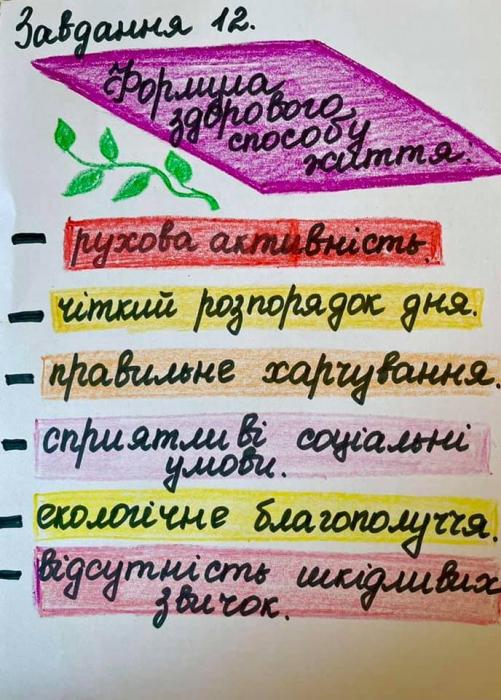 Завдання 12.
Формула
здорового
способу
життя:
- рухова активність.
- чіткий розпорядок дня.
- правильне харчування.
- сприятливі соціальні
умови.
- екологічне благополуччя.
- відсутність шкідливих
звичок.